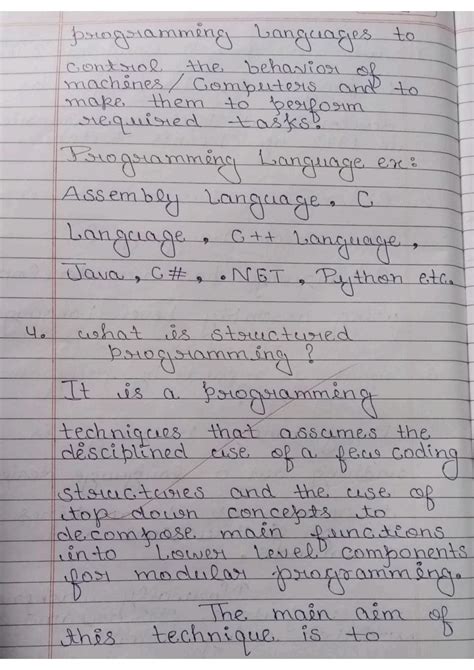 programming Languages to
control the behavior of
machines/Computers and to
make them to perform
required tasks.
Programming Language ex:
Assembly Language, C
Language, C++ Language,
Java, C#, .NET, Python etc.
4. what is structured
programming?
It is a programming
techniques that assumes the
desciplined use of a few coding
structures and the use of
top down concepts to
decompose main functions
into Lower level components
for modular programming.
The main aim of
this technique is to